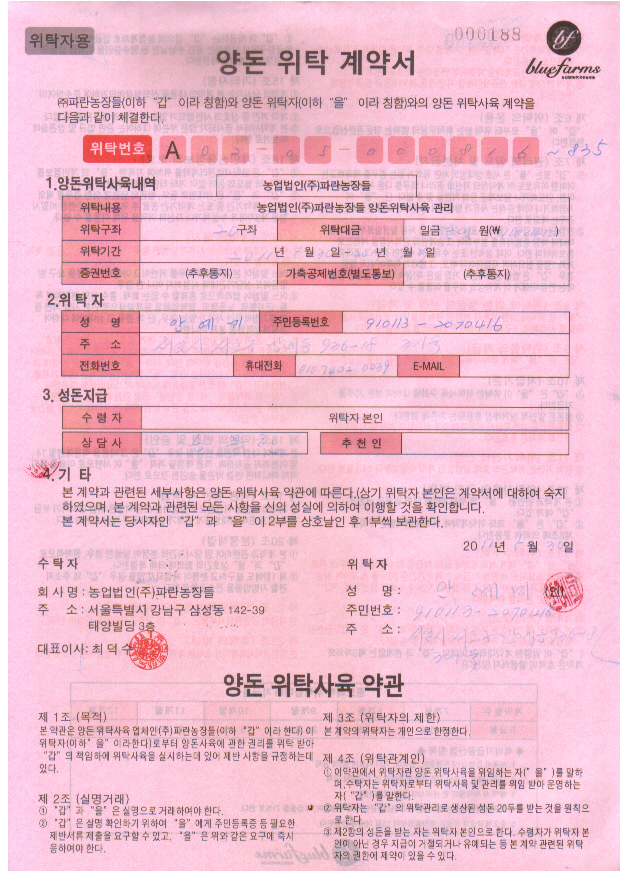 위탁자용
000188
bf
bluefarms
양돈 위탁 계약서
㈜파란농장들(이하 “갑” 이라 칭함)와 양돈 위탁자(이하 “을” 이라 칭함)와의 양돈 위탁사육 계약을
다음과 같이 체결한다.
위탁번호 A
1.양돈위탁사육내역 농업법인(주)파란농장들
위탁내용 농업법인(주)파란농장들 양돈위탁사육 관리
위탁구좌 구좌 위탁대금 일금 원(₩ )
위탁기간 년 월 일 - 년 월 일
증권번호 (추후통지) 가축공제번호(별도통보) (추후통지)
2.위 탁 자
성 명 주민등록번호 910113-2070416
주 소
전화번호 휴대전화 E-MAIL
3. 성돈지급
수 령 자 위탁자 본인
상 담 사 추 천 인
4.기 타
본 계약과 관련된 세부사항은 양돈 위탁사육 약관에 따른다.(상기 위탁자 본인은 계약서에 대하여 숙지
하였으며, 본 계약과 관련된 모든 사항을 신의 성실에 의하여 이행할 것을 확인합니다.
본 계약서는 당사자인 “갑” “을” 이 2부를 상호날인 후 1부씩 보관한다.
20 년 월 일
수 탁 자
회 사 명 : 농업법인(주)파란농장들
주 소 : 서울특별시 강남구 삼성동 142-39
태양빌딩 3층
대표이사: 최 덕 수
위 탁 자
성 명 : (인)
주민번호 : 910113-2070416
주 소 :
양돈 위탁사육 약관
제 1조 (목적)
본 약관은 양돈 위탁사육 업체인(주)파란농장들(이하 “갑”이라 한다) 이
위탁자(이하“ 을” 이라한다)로부터 양돈사육에 관한 권리를 위탁 받아
“갑”의 책임하에 위탁사육을 실시하는데 있어 제반 사항을 규정하는데
있다.
제 2조 (실명거래)
① “갑”과 “을”은 실명으로 거래하여야 한다.
② “갑”은 실명 확인하기 위하여 “을”에게 주민등록증 등 필요한
제반서류 제출을 요구할 수 있고, “을”은 위와 같은 요구에 즉시
응하여야 한다.
제 3조 (위탁자의 제한)
본 계약의 위탁자는 개인으로 한정한다.
제 4조 (위탁관계인)
① 이약관에서 위탁자란 양돈 위탁사육을 위임하는 자(“을”)를 말하
며,수탁자는 위탁자로부터 위탁사육 및 관리를 위임 받아 운영하는
자(“갑”)를 말한다.
② 위탁자는 “갑”의 위탁관리로 생산된 성돈 20두를 받는 것을 원칙으
로 한다.
③ 제2항의 성돈을 받는 자는 위탁자 본인으로 한다. 수령자가 위탁자 본
인이 아닌 경우 지급이 거절되거나 유예되는 등 본 계약 관련된 위탁
자의 권한에 제약이 있을 수 있다.